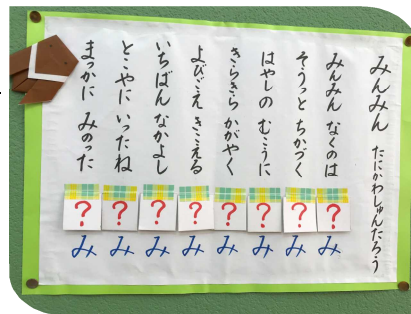 みんみん たにかわしゅんたろう
みんみん なくのは ？み
そうっと ちかづく ？み
はやしの むこうに ？み
きらきら かがやく ？み
よびごえ きこえる ？み
いちばん なかよし ？み
とこやに いったね ？み
まっかに みのった ？み